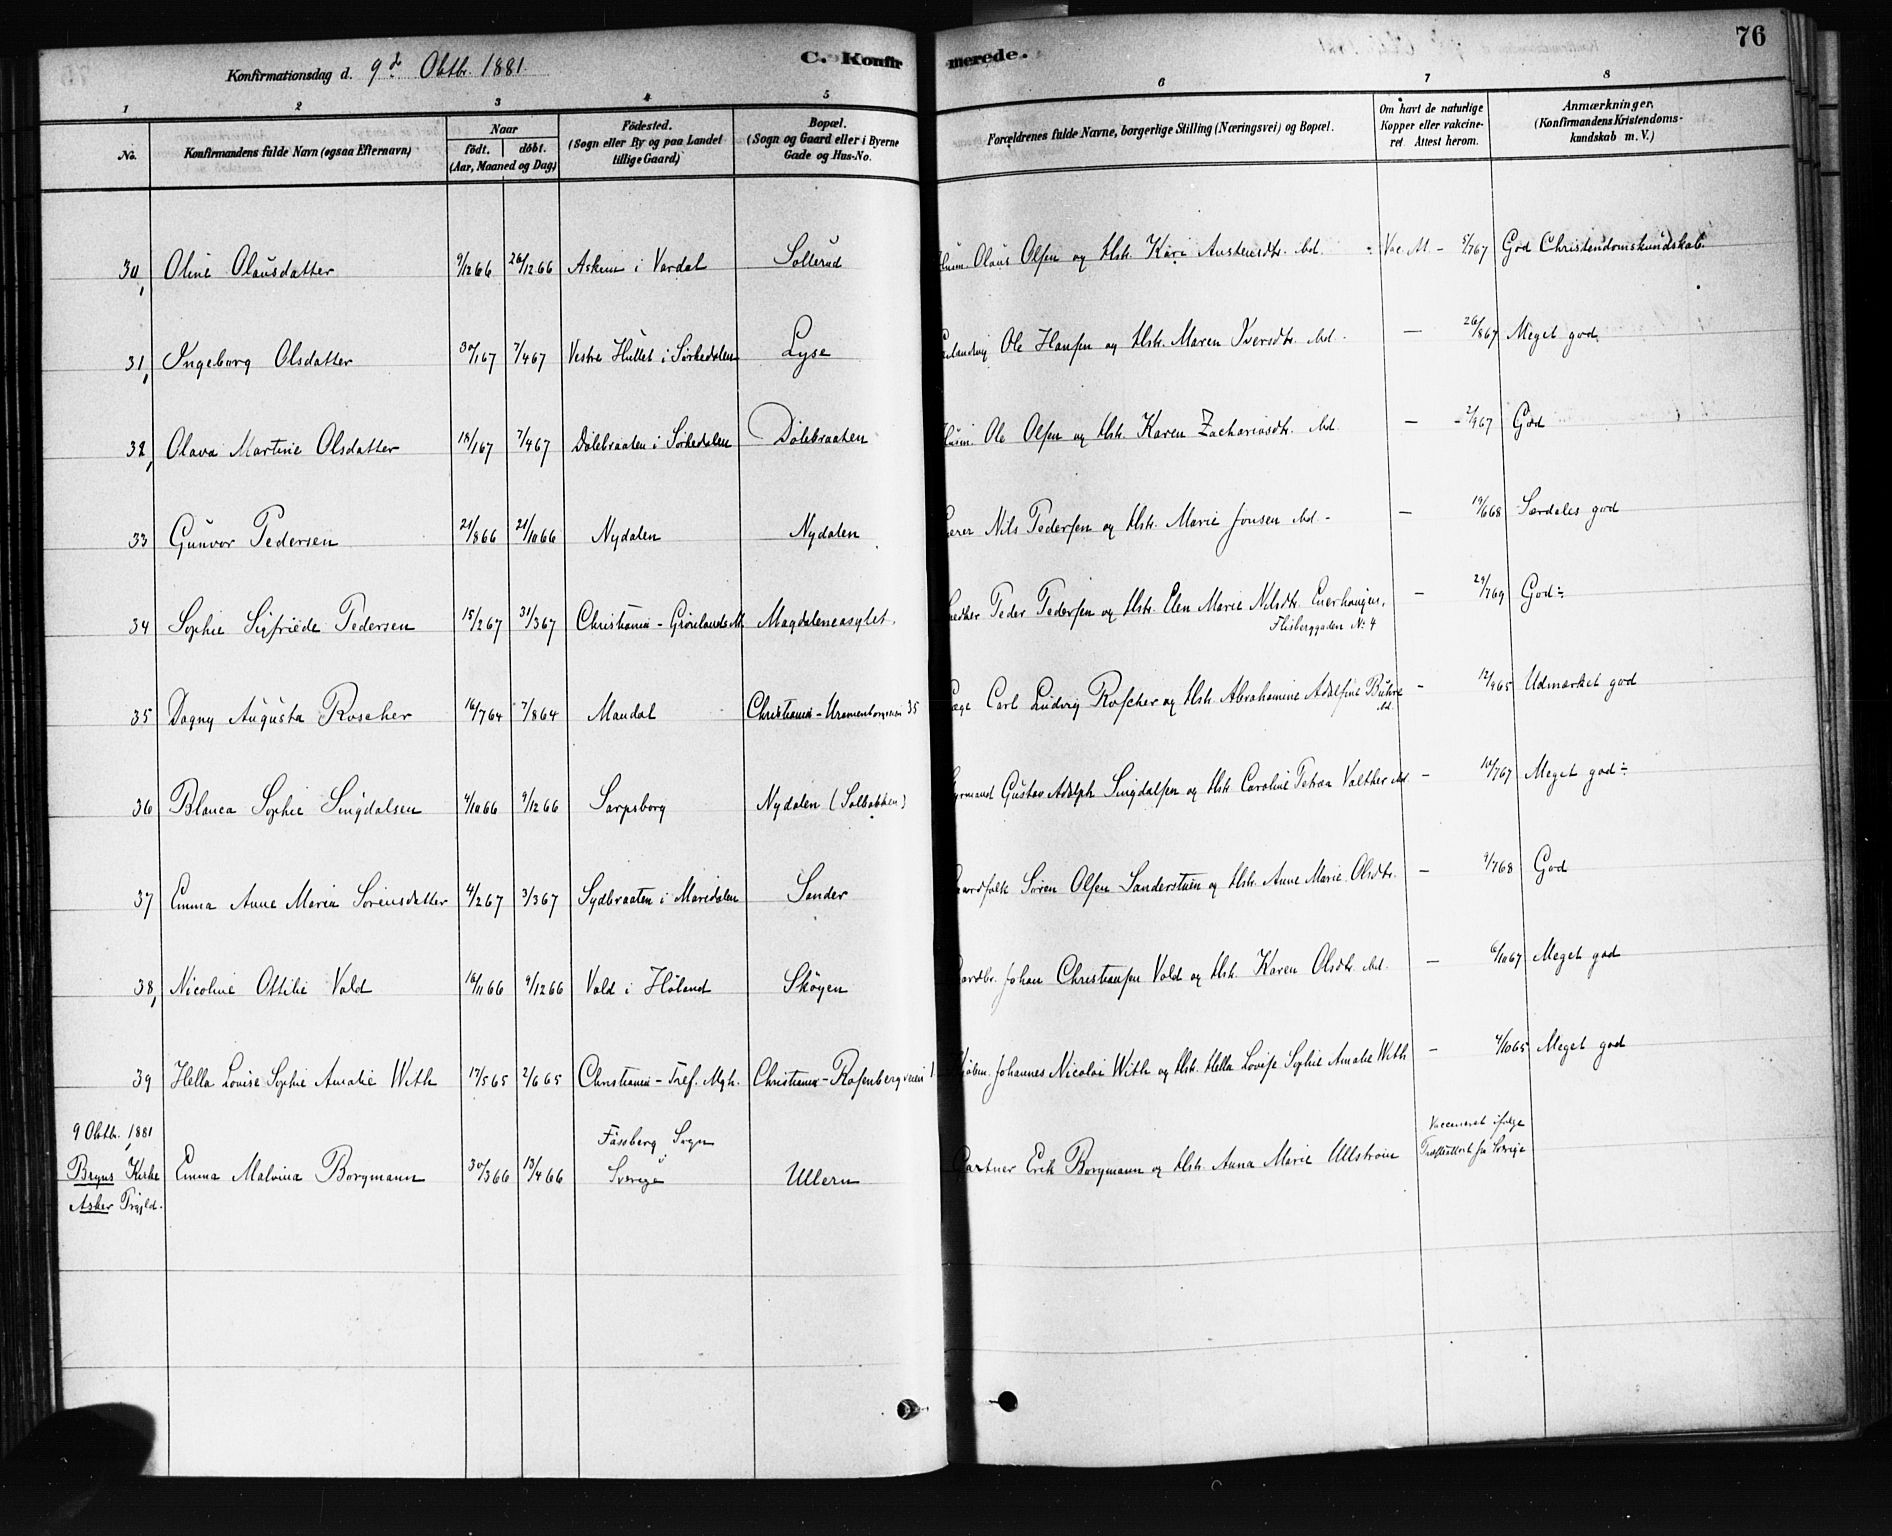 76
Konfirmationsdag d. 9d Oktbr 1881
C. Konfirmerede.
1 2 3 4 5 6 7 8
No.
Konfirmandens fulde Navn (ogsaa Efternavn)
Naar
födt. döbt.
(Aar, Maaned og Dag)
Födested.
(Sogn eller By og paa Landet
tillige Gaard)
Bopæl.
(Sogn og Gaard eller i Byerne
Gade og Hus-No.
Forældrenes fulde Navne, borgerlige Stilling (Næringsvei) og Bopæl.
Om havt de naturlige
Kopper eller vakcine-
ret Attest herom.
Anmærkninger.
(Konfirmandens Kristendoms-
kundskab m. V.)
30, Oline Olausdatter 9/12 66 26/12 66 Askim i Vardal Sollerud Husm. Olaus Olsen og Hstr. Kari Austensdtr. ibd. Vac. At - 5/7 67 God Christendomskundskab
31, Ingeborg Olsdatter 30/1 67 7/4 67 Vestre Hullet i Sørkedalen Lyse Ole Hansen og Hstr. Maren Iversdtr. ibd. — 26/8 67 Meget god.
32, Olava Martine Olsdatter 18/1 67 7/4 67 Dølebraaten i Sørkedalen Dölebraaten Husm. Ole Olsen og Hstr. Karen Zachariasdtr. ibd. — 2/9 67 God
33 Gunvor Pedersen 21/8 66 21/10 66 Nydalen Nydalen Nils Pedersen og Hstr. Marie Jonsen ibd - — 19/6 68 Særdeles god
34 Sophie Sigfriede Pedersen 15/2 67 31/3 67 Christiania - Grønlands M. Magdaleneasylet. Peder Pedersen og Hstr. Elen Marie Nilsdtr. Enerhaugen,
Flisberggaden No 4 — 29/7 69 God
35 Dagny Augusta Roscher 16/7 64 7/8 64 Mandal Christiania - Uranienborgveien 35 Læge Carl Ludvig Roscher og Hstr. Abrahamine Adolfine Buhre
ibd. - 12/9 65 Udmærket god
36 Blanca Sophie Singdalsen 4/10 66 9/12 66 Sarpsborg Nydalen (Solbakken) Styrmand Gustav Adolph Singdalsen og Hstr. Caroline Petraa Valther ibd - 10/7 67 Meget god
37 Emma Anne Maria Sørensdatter 4/2 67 3/3 67 Sydbraaten i Maridalen Sander Gaardfolk Sören Olsen Sanderstuen og Hstr. Anne Marie Olsdtr. — 9/7 68 God
38, Nicoline Ottilie Vold 16/11 66 9/12 66 Vold i Höland Sköyen Gaardbr. Johan Christiansen Vold og Hstr. Karen Olsdtr. ibd. — 6/10 67 Meget god
39 Hella Lovise Sophie Amalie With 17/5 65 2/6 65 Christiania - Tref. Mgh. Christiania - Rosenbergveien 1. Kjöbm. Johannes Nicolai With og Hstr. Hella Lovise Sophie Amalie With - 4/10 65 Meget god
9 Oktbr. 1881
Bryns Kirke
Asker Prgjld. Emma Malvina Borgmann 30/3 66 13/4 66 Fässberg Sogn
Sverige Ullern Gartner Erik Borgmann og Hstr. Anna Marie Ullström Vaccineret ifølge
Præsteattest fra Sverige